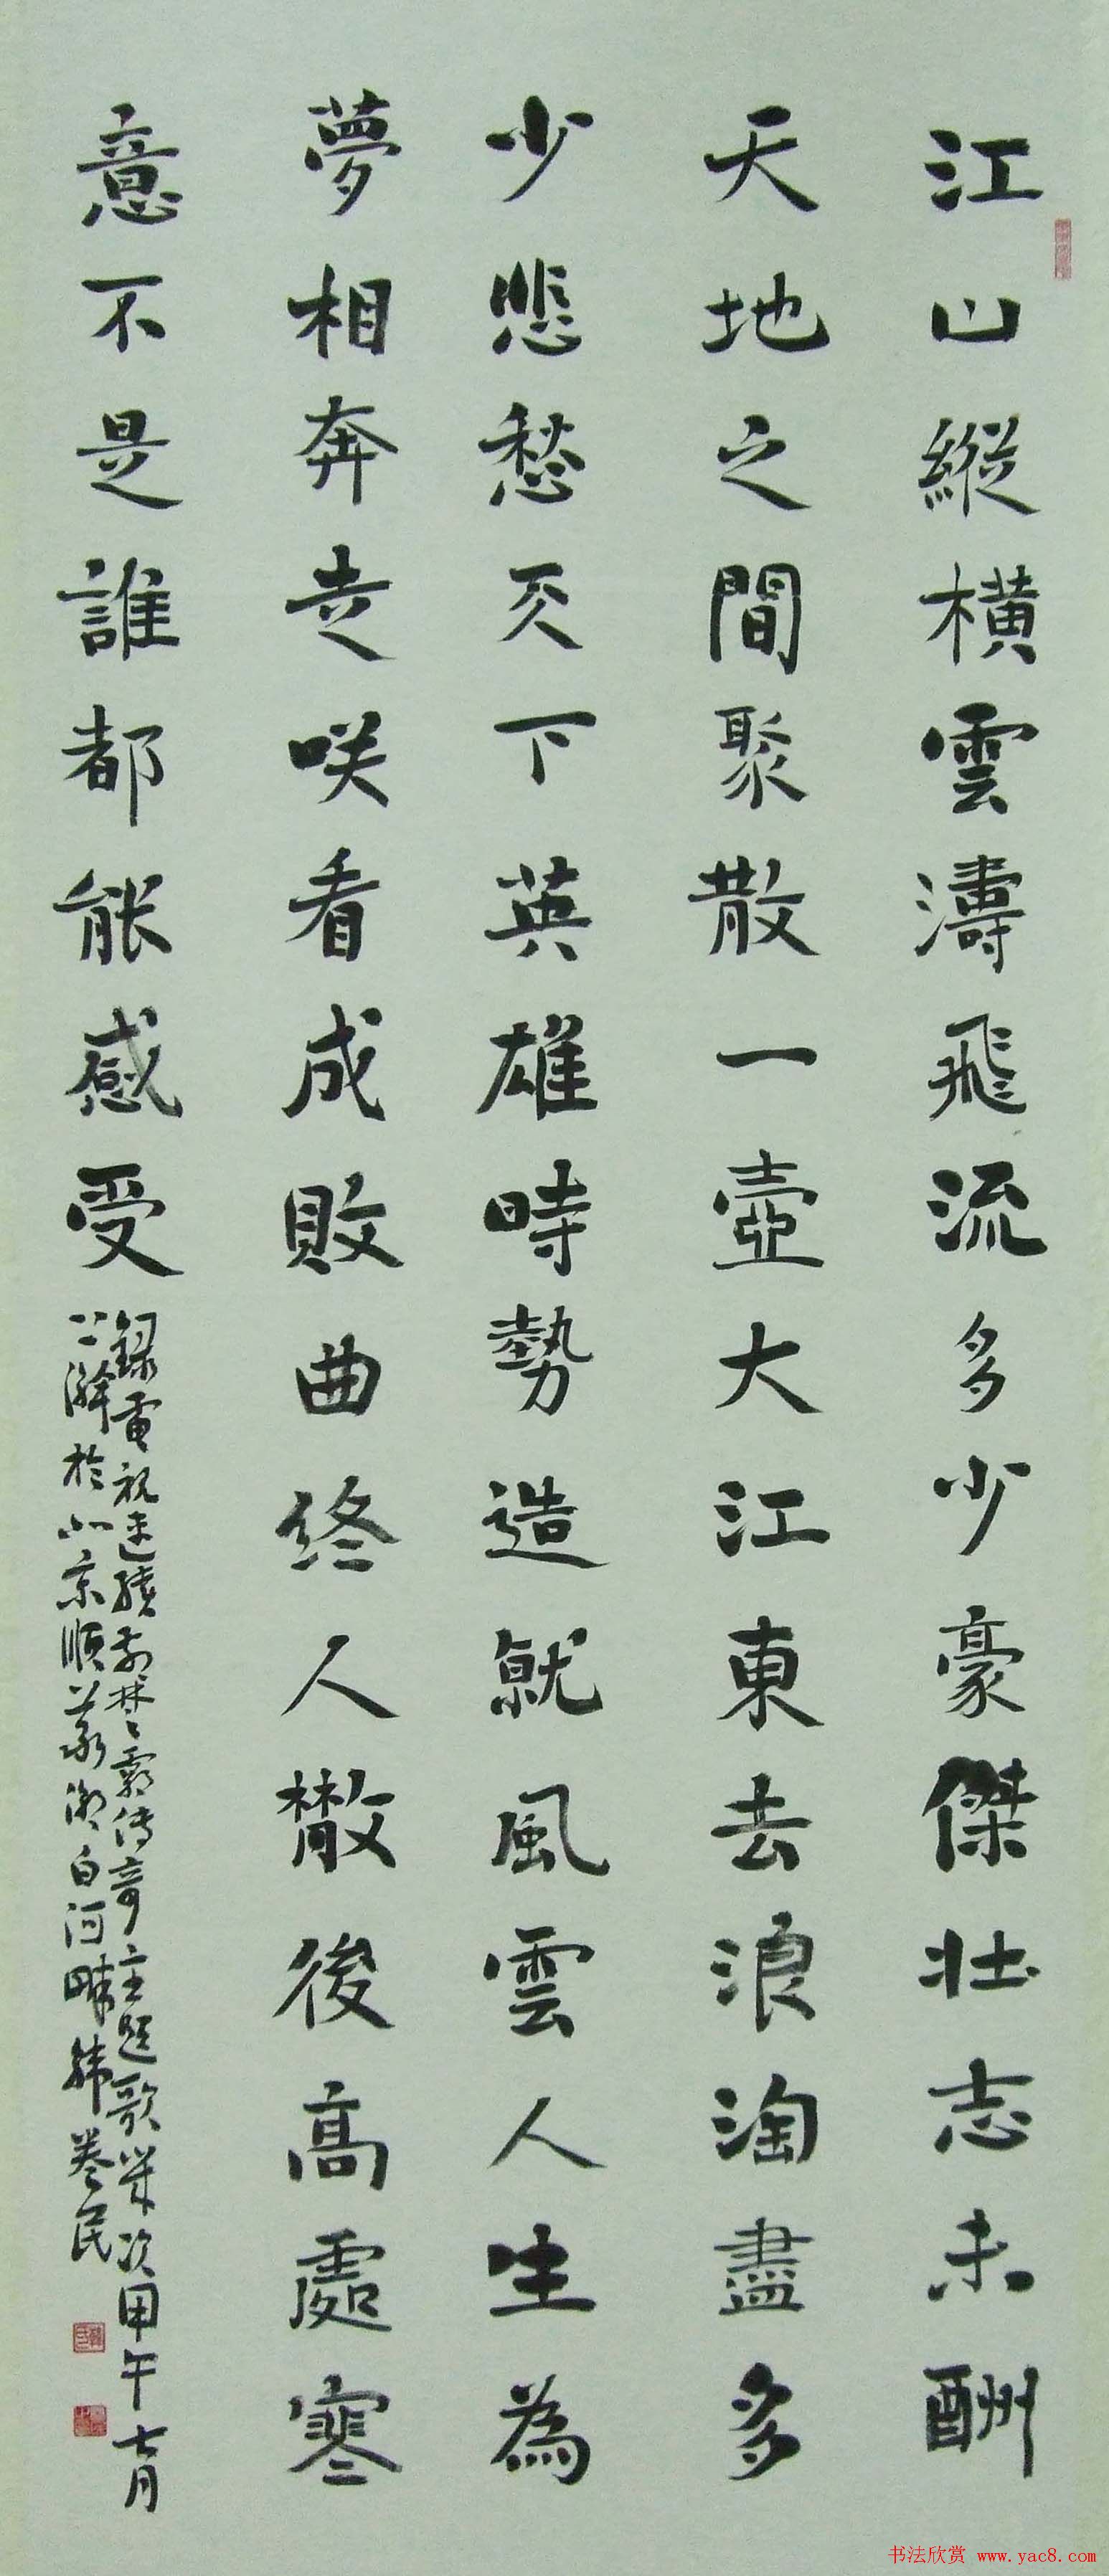 江山縱橫雲濤飛流多少豪傑壯志未酬
天地之間聚散一壺大江東去浪淘盡多
少悲愁天下英雄時勢造就風雲人生為
夢相奔走咲看成敗曲終人散後高處寒
意不是誰都能感受
録電視連續劇楚传奇主題歌歲次甲午七月
澣於北京順義潮白河畔韩民
书法欣赏 www.yac8.com